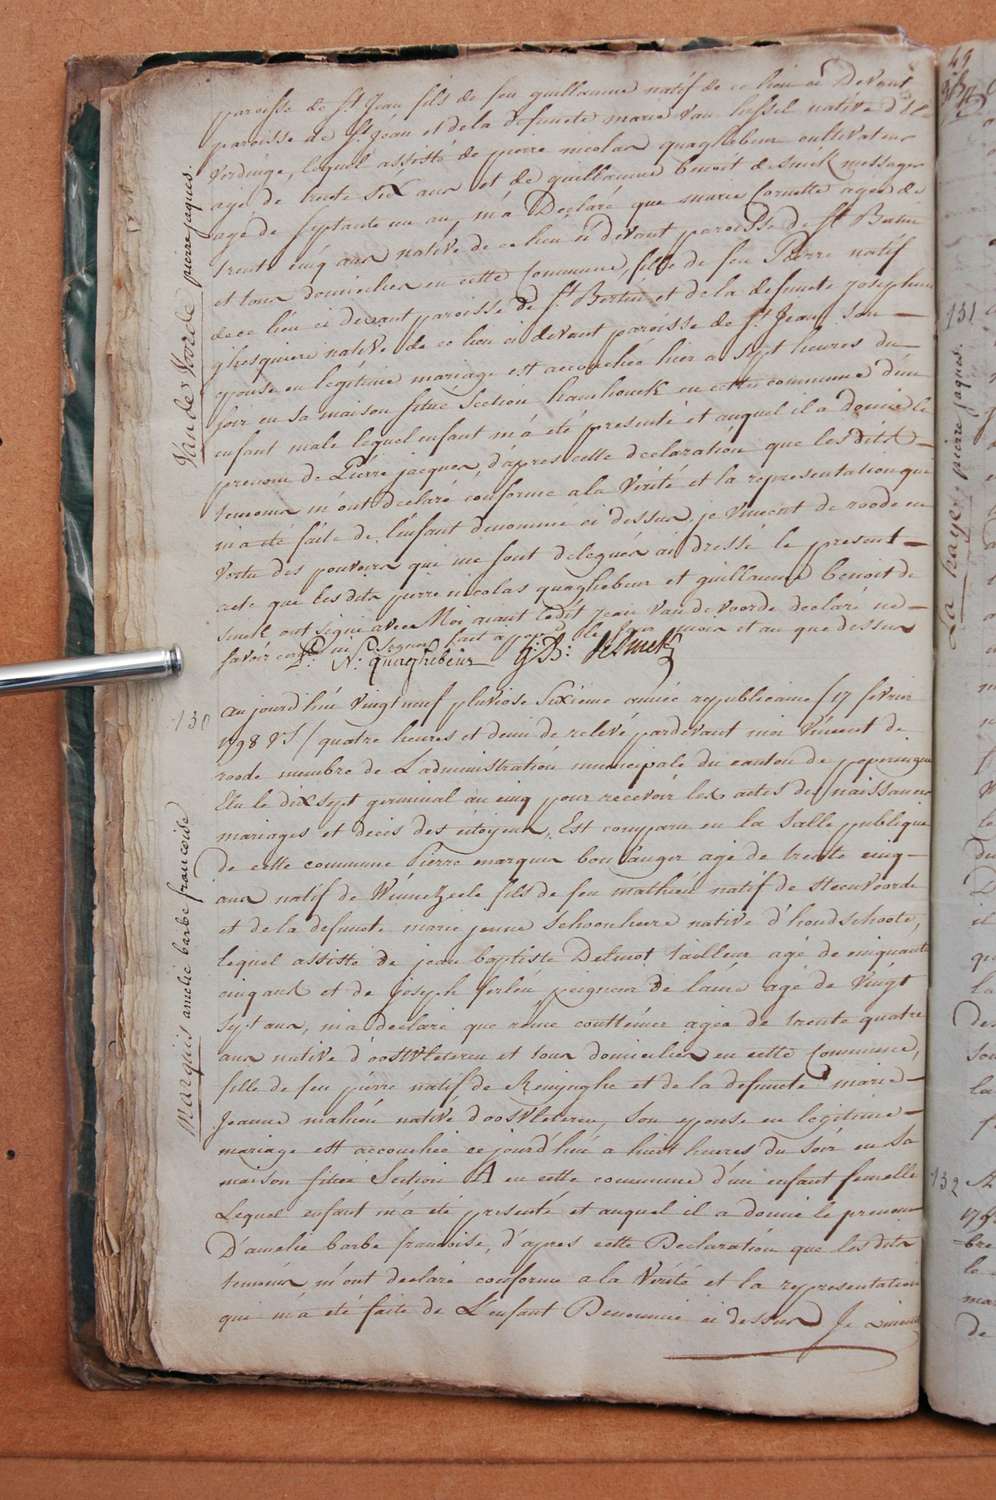 paroisse de St Jean fils de feu guillaume natif de ce lieu ci Devant
paroisse de St Jean et de la defuncte marie van hessel native d'El
verdinge, lequel assisté de pierre nicolas quaghebeur cultivateur
agé de trente six ans et de guillaume benoit desmek messager
agé de septante un an, m'a Déclaré que marie Cornette agée de
trente cinq ans native de ce lieu ci devant paroisse de St Bertin
et tous domiciliés en cette Commune, fille de feu Pierre natif
de ce lieu ci devant paroisse de St Bertin et de la defuncte josephine
ghesquiere native de ce lieu ci devant paroisse de St Jean, son
epouse en legitime mariage est accouchée hier a sept heures du
soir en sa maison situé Section hamhouck en cette commune d'un
enfant male lequel enfant m'a été presenté et auquel il a donné le
prenom de Pierre jacques, d'apres cette declaration que les dits
temoins m'ont declaré conforme a la Vérité et la représentation qui
m'a été faite de l'enfant denommé ci dessus. je vincent de roode en
vertu des pouvoirs qui me sont delegués ai dressé le present
acte que lesdits pierre nicolas quaghebeur et guillaume benoit de
smek ont signé avec Moi aiant ledit jean Vandevoorde declaré ne
savoir signer fait a pop. les jour mois et an que dessus
P: N: quaghebeur G: B: deSmek
Vandevoorde pierre jaques.
130
aujourd'hui vingt neuf pluviose sixième année republicaine / 17 fevrier
1798 VS / quatre heures et demi de relevé pardevant moi Vincent de
roode membre de L'administration municipale du canton de poperingue
Elu le dix sept germinal an cinq pour recevoir les actes de naissances
mariages et décés des citoyens, Est comparu en la salle publique
de cette commune Pierre marquis boulanger agé de trente cinq
ans natif de Winnezeele fils de feu mathieu natif de steenvoorde
et de la defuncte marie jeanne schoonheere native d'hondschoote,
lequel assisté de jean baptiste Delmot tailleur agé de cinquante
cinq ans et de joseph ferleu peigneur de laine agé de Vingt
sept ans, m'a declaré que rome couttenier agée de trente quatre
ans native d'oostvleteren et tous domiciliés en cette Commune,
fille de feu pierre natif de Reninghe et de la defuncte marie
Jeanne mahieu native d'oostvleteren, son epouse en legitime
mariage est accouchée cejourd'hui a huit heures du soir en sa
maison située Section A en cette commune d'un enfant femelle
Lequel enfant m'a été presenté et auquel il a donné le prenom
D'amelie barbe francoise, d'apres cette Declaration que les dits
temoins m'ont declaré conforme a la Vérité et la representation
qui m'a été faite de L'enfant Denommé ci dessus Je Vincent
Marquis amelie barbe francoise
49
131
La haye pierre jaques.
132